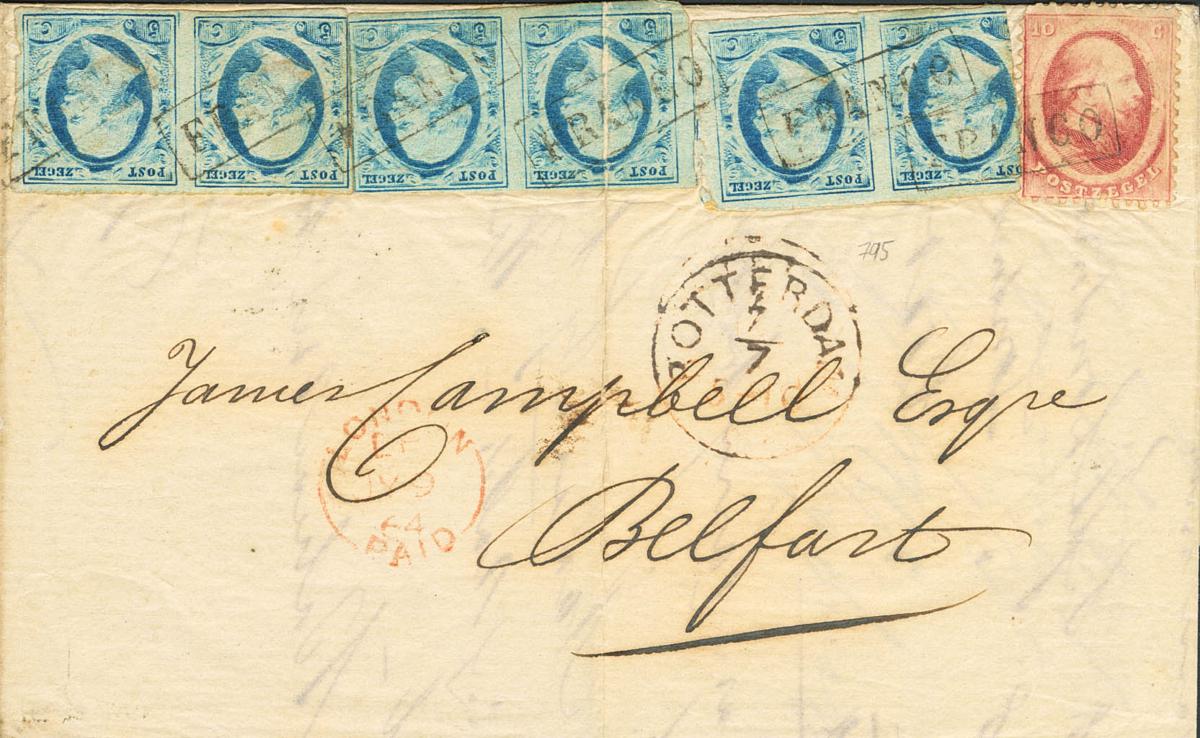 5 C 5 C 5 C 5 C 5 C 10 C
POST ZEGEL POST ZEGEL POST ZEGEL POST ZEGEL POST ZEGEL POST ZEGEL POSTZEGEL
FRANCO FRANCO FRANCO
795
ROTTERDAM
7
James Campbell Esqre
LONDON
PAID
Belfast